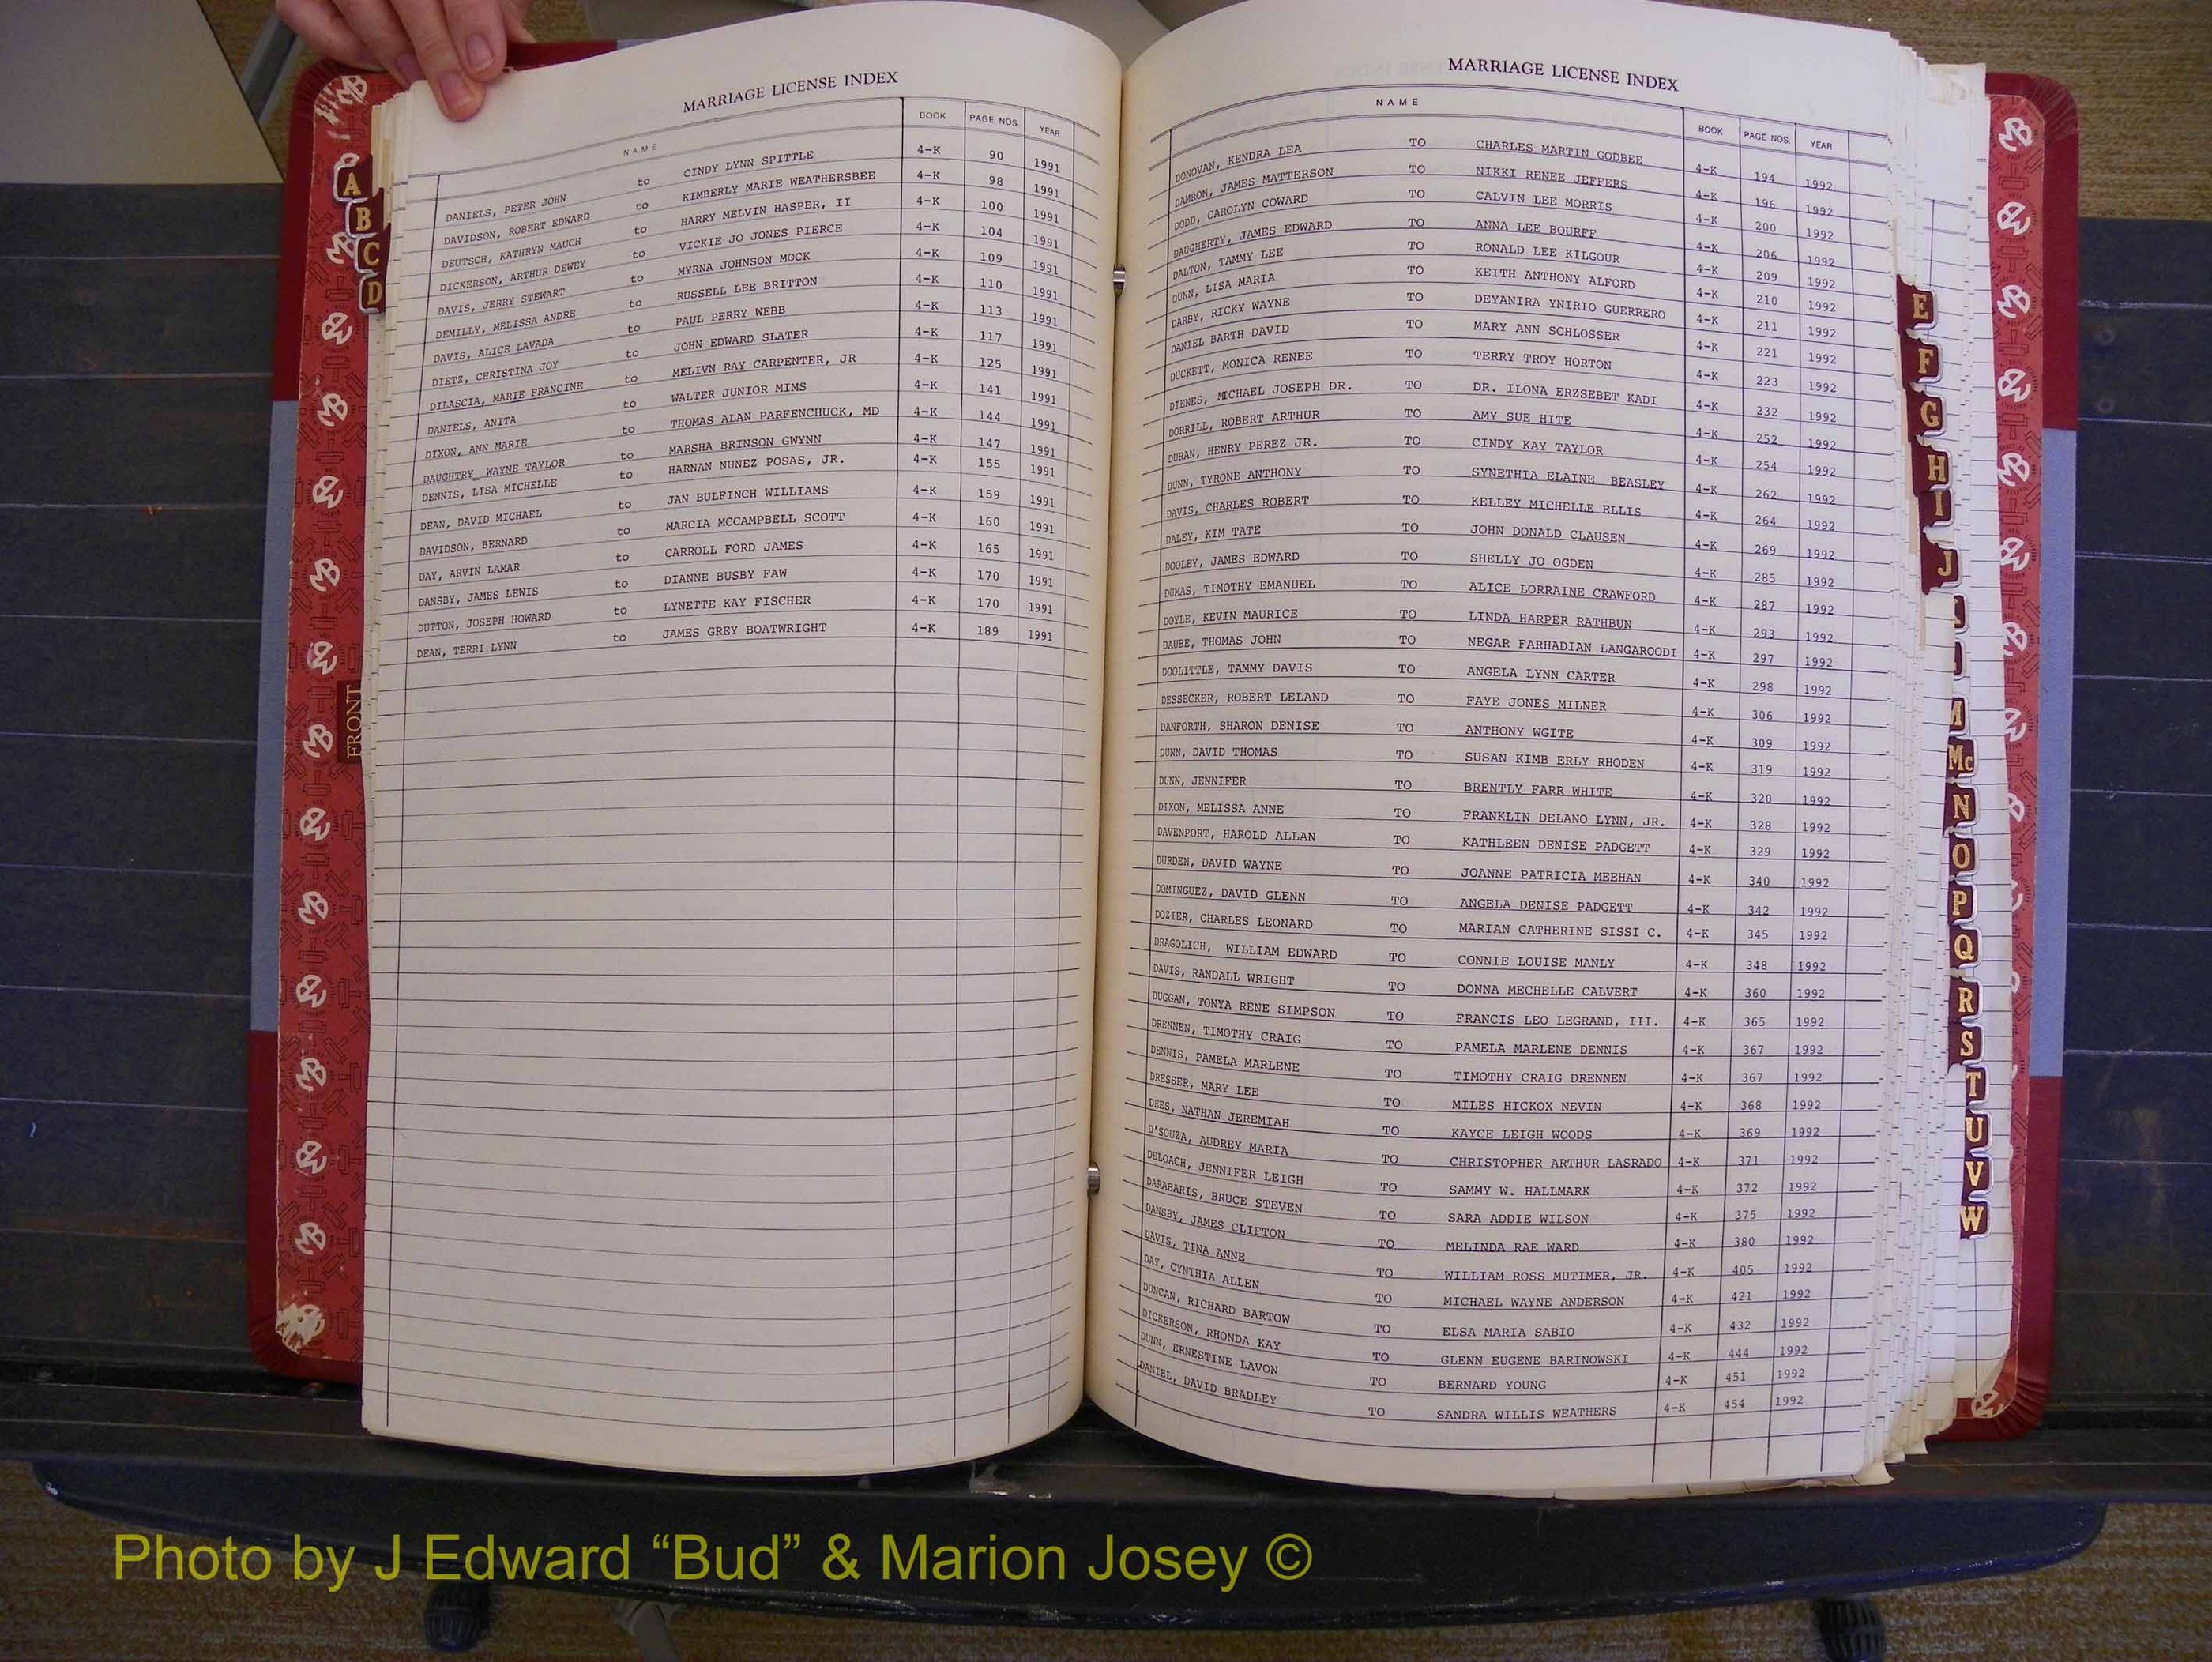 MARRIAGE LICENSE INDEX
NAME BOOK PAGE NOS. YEAR
DANIELS, PETER JOHN to CINDY LYNN SPITTLE 4-K 90 1991
DAVIDSON, ROBERT EDWARD to KIMBERLY MARIE WEATHERSBEE 4-K 98 1991
DEUTSCH, KATHRYN MAUCH to HARRY MELVIN HASPER, II 4-K 100 1991
DICKERSON, ARTHUR DEWEY to VICKIE JO JONES PIERCE 4-K 104 1991
DAVIS, JERRY STEWART to MYRNA JOHNSON MOCK 4-K 109 1991
DEMILLY, MELISSA ANDRE to RUSSELL LEE BRITTON 4-K 110 1991
DAVIS, ALICE LAVADA to PAUL PERRY WEBB 4-K 113 1991
DIETZ, CHRISTINA JOY to JOHN EDWARD SLATER 4-K 117 1991
DILASCIA, MARIE FRANCINE to MELIVN RAY CARPENTER, JR 4-K 125 1991
DANIELS, ANITA to WALTER JUNIOR MIMS 4-K 141 1991
DIXON, ANN MARIE to THOMAS ALAN PARFENCHUCK, MD 4-K 144 1991
DAUGHTRY_ WAYNE TAYLOR to MARSHA BRINSON GWYNN 4-K 147 1991
DENNIS, LISA MICHELLE to HARNAN NUNEZ POSAS, JR. 4-K 155 1991
DEAN, DAVID MICHAEL to JAN BULFINCH WILLIAMS 4-K 159 1991
DAVIDSON, BERNARD to MARCIA MCCAMPBELL SCOTT 4-K 160 1991
DAY, ARVIN LAMAR to CARROLL FORD JAMES 4-K 165 1991
DANSBY, JAMES LEWIS to DIANNE BUSBY FAW 4-K 170 1991
DUTTON, JOSEPH HOWARD to LYNETTE KAY FISCHER 4-K 170 1991
DEAN, TERRI LYNN to JAMES GREY BOATWRIGHT 4-K 189 1991
A
B
C
D
FRONT
MARRIAGE LICENSE INDEX
NAME BOOK PAGE NOS. YEAR
DONOVAN, KENDRA LEA TO CHARLES MARTIN GODBEE 4-K 194 1992
DAMRON, JAMES MATTERSON TO NIKKI RENEE JEFFERS 4-K 196 1992
DODD, CAROLYN COWARD TO CALVIN LEE MORRIS 4-K 200 1992
DAUGHERTY, JAMES EDWARD TO ANNA LEE BOURFF 4-K 206 1992
DALTON, TAMMY LEE TO RONALD LEE KILGOUR 4-K 209 1992
DUNN, LISA MARIA TO KEITH ANTHONY ALFORD 4-K 210 1992
DARBY, RICKY WAYNE TO DEYANIRA YNIRIO GUERRERO 4-K 211 1992
DANIEL BARTH DAVID TO MARY ANN SCHLOSSER 4-K 221 1992
DUCKETT, MONICA RENEE TO TERRY TROY HORTON 4-K 223 1992
DIENES, MICHAEL JOSEPH DR. TO DR. ILONA ERZSEBET KADI 4-K 232 1992
DORRILL, ROBERT ARTHUR TO AMY SUE HITE 4-K 252 1992
DURAN, HENRY PEREZ JR. TO CINDY KAY TAYLOR 4-K 254 1992
DUNN, TYRONE ANTHONY TO SYNETHIA ELAINE BEASLEY 4-K 262 1992
DAVIS, CHARLES ROBERT TO KELLEY MICHELLE ELLIS 4-K 264 1992
DALEY, KIM TATE TO JOHN DONALD CLAUSEN 4-K 269 1992
DOOLEY, JAMES EDWARD TO SHELLY JO OGDEN 4-K 285 1992
DUMAS, TIMOTHY EMANUEL TO ALICE LORRAINE CRAWFORD 4-K 287 1992
DOYLE, KEVIN MAURICE TO LINDA HARPER RATHBUN 4-K 293 1992
DAUBE, THOMAS JOHN TO NEGAR FARHADIAN LANGAROODI 4-K 297 1992
DOOLITTLE, TAMMY DAVIS TO ANGELA LYNN CARTER 4-K 298 1992
DESSECKER, ROBERT LELAND TO FAYE JONES MILNER 4-K 306 1992
DANFORTH, SHARON DENISE TO ANTHONY WGITE 4-K 309 1992
DUNN, DAVID THOMAS TO SUSAN KIMB ERLY RHODEN 4-K 319 1992
DUNN, JENNIFER TO BRENTLY FARR WHITE 4-K 320 1992
DIXON, MELISSA ANNE TO FRANKLIN DELANO LYNN, JR. 4-K 328 1992
DAVENPORT, HAROLD ALLAN TO KATHLEEN DENISE PADGETT 4-K 329 1992
DURDEN, DAVID WAYNE TO JOANNE PATRICIA MEEHAN 4-K 340 1992
DOMINGUEZ, DAVID GLENN TO ANGELA DENISE PADGETT 4-K 342 1992
DOZIER, CHARLES LEONARD TO MARIAN CATHERINE SISSI C. 4-K 345 1992
DRAGOLICH, WILLIAM EDWARD TO CONNIE LOUISE MANLY 4-K 348 1992
DAVIS, RANDALL WRIGHT TO DONNA MECHELLE CALVERT 4-K 360 1992
DUGGAN, TONYA RENE SIMPSON TO FRANCIS LEO LEGRAND, III. 4-K 365 1992
DRENNEN, TIMOTHY CRAIG TO PAMELA MARLENE DENNIS 4-K 367 1992
DENNIS, PAMELA MARLENE TO TIMOTHY CRAIG DRENNEN 4-K 367 1992
DRESSER, MARY LEE TO MILES HICKOX NEVIN 4-K 368 1992
DEES, NATHAN JEREMIAH TO KAYCE LEIGH WOODS 4-K 369 1992
D'SOUZA, AUDREY MARIA TO CHRISTOPHER ARTHUR LASRADO 4-K 371 1992
DELOACH, JENNIFER LEIGH TO SAMMY W. HALLMARK 4-K 372 1992
DARABARIS, BRUCE STEVEN TO SARA ADDIE WILSON 4-K 375 1992
DANSBY, JAMES CLIFTON TO MELINDA RAE WARD 4-K 380 1992
DAVIS, TINA ANNE TO WILLIAM ROSS MUTIMER, JR. 4-K 405 1992
DAY, CYNTHIA ALLEN TO MICHAEL WAYNE ANDERSON 4-K 421 1992
DUNCAN, RICHARD BARTOW TO ELSA MARIA SABIO 4-K 432 1992
DICKERSON, RHONDA KAY TO GLENN EUGENE BARINOWSKI 4-K 444 1992
DUNN, ERNESTINE LAVON TO BERNARD YOUNG 4-K 451 1992
DANIEL, DAVID BRADLEY TO SANDRA WILLIS WEATHERS 4-K 454 1992
E
F
G
H
I
J
Mc
N
O
P
Q
R
S
T
U
V
W
Photo by J Edward “Bud” & Marion Josey ©